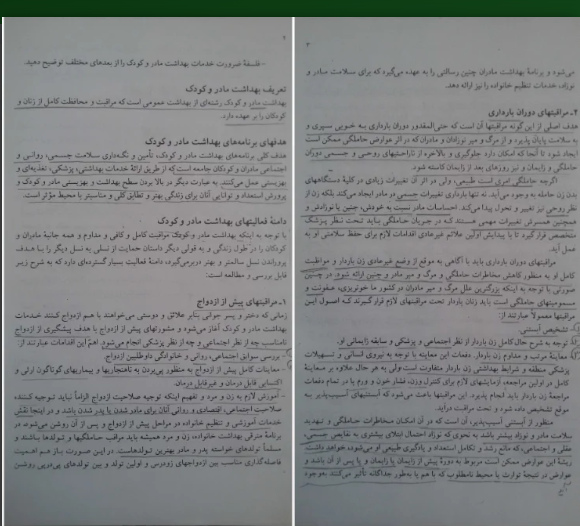 ۲
- فلسفهٔ ضرورت خدمات بهداشت مادر و کودک را از بعدهای مختلف توضیح دهید.
تعریف بهداشت مادر و کودک
بهداشت مادر و کودک رشته‌ای از بهداشت عمومی است که مراقبت و محافظت کامل از زنان و
کودکان را بر عهده دارد.
هدفهای برنامه‌های بهداشت مادر و کودک
هدف کلی برنامه‌های بهداشت مادر و کودک، تأمین و نگهداری سلامت جسمی، روانی و
اجتماعی مادران و کودکان جامعه است که از طریق ارائهٔ خدمات بهداشتی، پزشکی، تغذیه‌ای و
بهزیستی عمل می‌کنند. به عبارت دیگر در بالا بردن سطح بهداشت و بهزیستی مادر و کودک و
پرورش استعداد و توانایی آنان برای زندگی بهتر و تطابق کلی و مناسبتر با محیط مؤثر است.
دامنهٔ فعالیتهای بهداشت مادر و کودک
با توجه به اینکه بهداشت مادر و کودک مراقبت کامل و کافی و مداوم و همه جانبهٔ مادران و
کودکان را در طول زندگی و به قولی دیگر داستان حمایت از نسلی به نسل دیگر را با هدف
پروراندن نسل سالمتر و بهتر دربرمی‌گیرد، دامنهٔ فعالیت بسیار گسترده‌ای دارد که به شرح زیر
قابل بررسی و مطالعه است:
۱ـ مراقبتهای پیش از ازدواج
زمانی که دختر و پسر جوانی بنابر علائق و دوستی می‌خواهند با هم ازدواج کنند خدمات
بهداشت مادر و کودک آغاز می‌شود و مشورتهای پیش از ازدواج با هدف پیشگیری از ازدواج
نامناسب چه از نظر اجتماعی و چه از نظر پزشکی انجام می‌گیرد. اهمّ این اقدامات عبارتند از:
- بررسی سوابق اجتماعی، روانی و خانوادگی داوطلبین ازدواج
- معاینات کامل پیش از ازدواج به منظور پی‌بردن به ناهنجاریها و بیماریهای گوناگون ارثی و
اکتسابی قابل درمان و غیرقابل درمان.
- آموزش لازم به زن و مرد و تفهیم اینکه توجیه صلاحیت ازدواج الزاماً نباید توجیه کنندهٔ
صلاحیت اجتماعی، اقتصادی و روانی آنان برای مادر شدن یا پدر شدن باشد و در اینجا نقش
خدمات آموزشی و تنظیم خانواده در مراحل پیش از ازدواج و پس از آن روشن می‌شود. در
برنامهٔ مترقی بهداشت خانواده، زن و مرد همیشه باید مراقب حاملگیها و تولدها باشند و
مسلماً تولدهای خواسته پدر و مادر بهترین تولدهاست. در این صورت باز هم اهمیت
فاصله‌گذاری مناسب بین ازدواجهای زودرس و اولین تولد و بین تولدهای پی‌درپی روشن
۳
می‌شود و برنامهٔ بهداشت مادران چنین رسالتی را به عهده می‌گیرد که برای سلامت مادر و
نوزاد، خدمات تنظیم خانواده را نیز ارائه دهد.
۲ـ مراقبتهای دوران بارداری
هدف اصلی از این گونه مراقبتها آن است که حتی‌المقدور دوران بارداری به خوبی سپری و
به سلامت پایان پذیرد، و از مرگ و میر نوزادان و مادران که در اثر عوارض حاملگی ممکن است
ایجاد شود تا آنجا که امکان دارد جلوگیری و بالاخره از ناراحتیهای روحی و جسمی دوران
حاملگی و زایمان و نیز روزهای بعد از زایمان کاسته شود.
اگرچه حاملگی امری است طبیعی، ولی در اثر آن تغییرات زیادی در کلیهٔ دستگاههای
بدن زن حامله به وجود می‌آید. نه تنها بارداری تغییرات جسمی در مادر ایجاد می‌کند بلکه زن از
نظر روحی نیز تغییر و تحول پیدا می‌کند. احساسات مادر نسبت به خودش، جنین یا نوزادش و
همچنین همسرش تغییرات مهمی هستند که در جریان حاملگی باید تحت نظر پزشک
متخصص قرار گیرد تا با پیدایش اولین علائم غیرعادی اقدامات لازم برای حفظ سلامتی او به
عمل آید.
مراقبتهای دوران بارداری باید با آگاهی به موقع از وضع غیرعادی زن باردار و مواظبت
کامل او به منظور کاهش مخاطرات حاملگی و مرگ و میر مادر و جنین ارائه شود. در چنین
صورتی با توجه به اینکه بزرگترین علل مرگ و میر مادران در کشور ما خونریزی، عفونت و
مسمومیتهای حاملگی است باید زنان باردار تحت مراقبتهای لازم قرار گیرند که اصول این
مراقبتها معمولاً عبارتند از:
- تشخیص آبستنی.
- توجه به شرح حال کامل زن باردار از نظر اجتماعی و پزشکی و سابقه زایمانی او.
- معاینهٔ مرتب و مداوم زن باردار. دفعات این معاینه با توجه به نیروی انسانی و تسهیلات
پزشکی منطقه و شرایط بهداشتی زن باردار متفاوت است ولی به هر حال علاوه بر معاینهٔ
کامل در اولین مراجعه، آزمایشهای لازم برای کنترل وزن، فشار خون و ورم پا در تمام دفعات
مراجعهٔ زن باردار باید انجام پذیرد. این مراقبتها باعث می‌شود که آبستنیهای آسیب‌پذیر به
موقع تشخیص داده شود و تحت مراقبت درآید.
منظور از آبستنی آسیب‌پذیر، آن است که در آن امکان مخاطرات حاملگی و تهدید
سلامت مادر و نوزاد بیشتر باشد به نحوی که نوزاد احتمال ابتلای بیشتری به نقایص جسمی،
عقلی و اجتماعی، که مانع رشد و تکامل استعداد و یادگیری طبیعی او می‌شود، خواهد داشت.
ریشهٔ این عوارض ممکن است مربوط به دورهٔ پیش از زایمان یا زایمان و یا پس از آن باشد و
عوارض در نتیجهٔ توارث یا محیط نامطلوب که با هم یا به‌طور جداگانه تأثیر می‌کنند به‌وجود